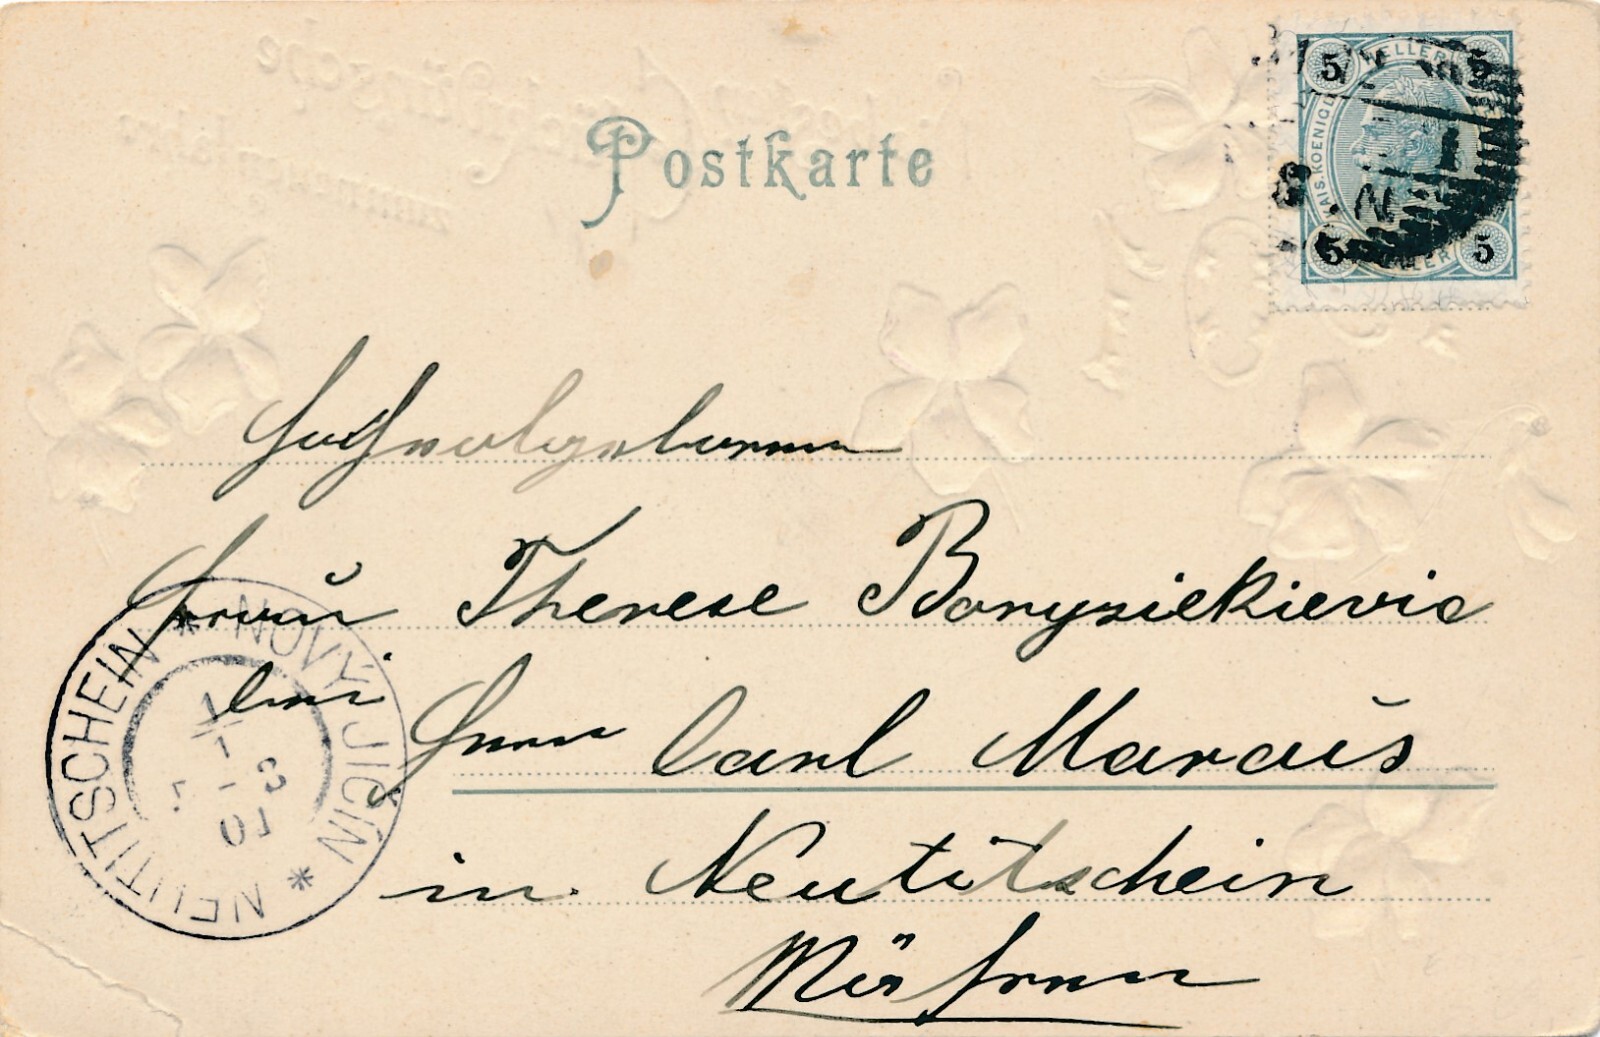 Postkarte
5 HELLER 5
KAIS. KOENIGL.
5 HELLER 5
Hochwolgeborenen
Frau Therese Borysiekievic
bei Herrn Carl Marais
in Neutitschein
Mähren
NEUTITSCHEIN * NOVÝ JIČÍN *
1
1
01